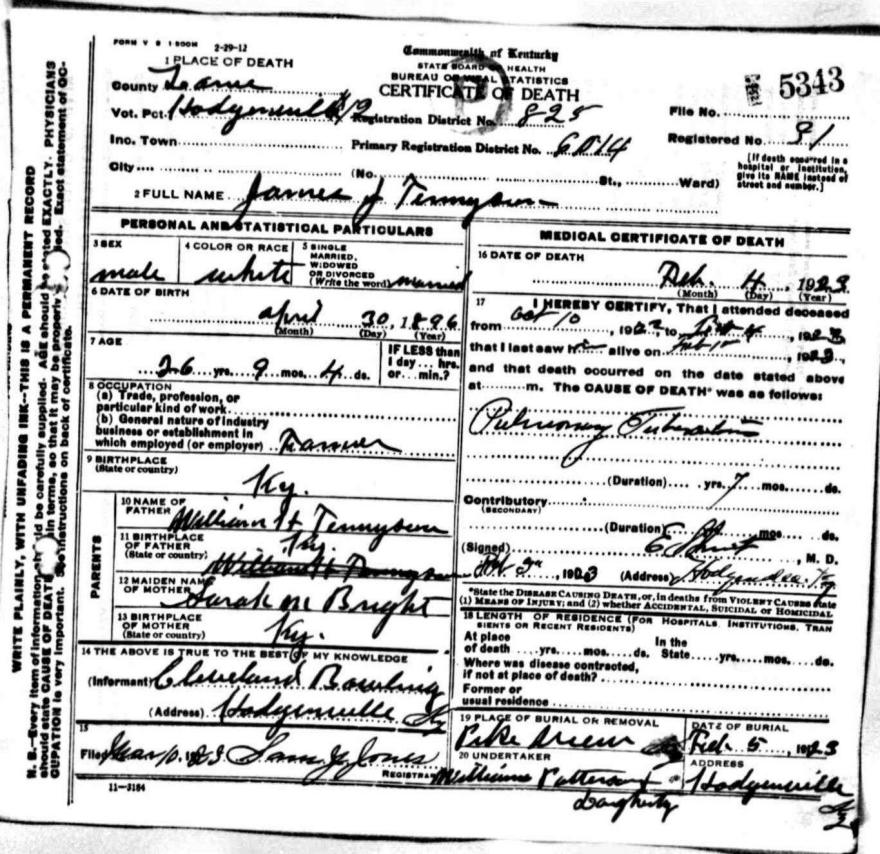 FORM V S 1 500M 2-29-12
Commonwealth of Kentucky
STATE BOARD OF HEALTH
BUREAU OF VITAL STATISTICS
CERTIFICATE OF DEATH
5343
1 PLACE OF DEATH
County Larue
Vot. Pct. Hodgenville Registration District No. 825
File No.
Inc. Town Primary Registration District No. 6014
Registered No 91
City (No. St., Ward)
[If death occurred in a hospital or institution, give its NAME instead of street and number.]
2 FULL NAME James J Tennyson
PERSONAL AND STATISTICAL PARTICULARS
3 SEX male
4 COLOR OR RACE white
5 SINGLE MARRIED, WIDOWED OR DIVORCED (Write the word) married
6 DATE OF BIRTH
April 30, 1896
(Month) (Day) (Year)
7 AGE
26 yrs. 9 mos. 4 ds.
IF LESS than 1 day ... hrs. or... min.?
8 OCCUPATION
(a) Trade, profession, or
particular kind of work
(b) General nature of industry
business or establishment in
which employed (or employer) Farmer
9 BIRTHPLACE
(State or country)
Ky.
PARENTS
10 NAME OF FATHER
William H Tennyson
11 BIRTHPLACE OF FATHER (State or country) Ky.
William H Tennyson
12 MAIDEN NAME OF MOTHER
Sarah M Bright
13 BIRTHPLACE OF MOTHER (State or country) Ky.
14 THE ABOVE IS TRUE TO THE BEST OF MY KNOWLEDGE
(Informant) Cleveland Bowling
(Address) Hodgenville Ky
15
Filed Mar 10, 1923 Jones
REGISTRAR
11-3184
MEDICAL CERTIFICATE OF DEATH
16 DATE OF DEATH
Feb. 4 1923
(Month) (Day) (Year)
17 I HEREBY CERTIFY, That I attended deceased
from Oct 10, 1922, to Feb 4, 1923,
that I last saw him alive on Feb 1st, 1923,
and that death occurred on the date stated above
at m. The CAUSE OF DEATH* was as follows:
Pulmonary Tuberculosis
(Duration) yrs. 7 mos. ds.
Contributory
(SECONDARY)
(Duration) mos. ds.
(Signed) E, M. D.
1923 (Address) Hodgenville, Ky
*State the DISEASE CAUSING DEATH, or, in deaths from VIOLENT CAUSES state
(1) MEANS OF INJURY; and (2) whether ACCIDENTAL, SUICIDAL or HOMICIDAL
18 LENGTH OF RESIDENCE (FOR HOSPITALS, INSTITUTIONS, TRAN
SIENTS OR RECENT RESIDENTS)
At place of death yrs. mos. ds. In the State yrs. mos. ds.
Where was disease contracted,
if not at place of death?
Former or
usual residence
19 PLACE OF BURIAL OR REMOVAL
Pike View
DATE OF BURIAL
Feb 5, 1923
20 UNDERTAKER
Williams Patterson &
Daugherty
ADDRESS
Hodgenville
Ky
WRITE PLAINLY, WITH UNFADING INK--THIS IS A PERMANENT RECORD
N. B.--Every item of information should be carefully supplied. AGE should be stated EXACTLY. PHYSICIANS
should state CAUSE OF DEATH in plain terms, so that it may be properly classified. Exact statement of OC-
CUPATION is very important. See instructions on back of certificate.